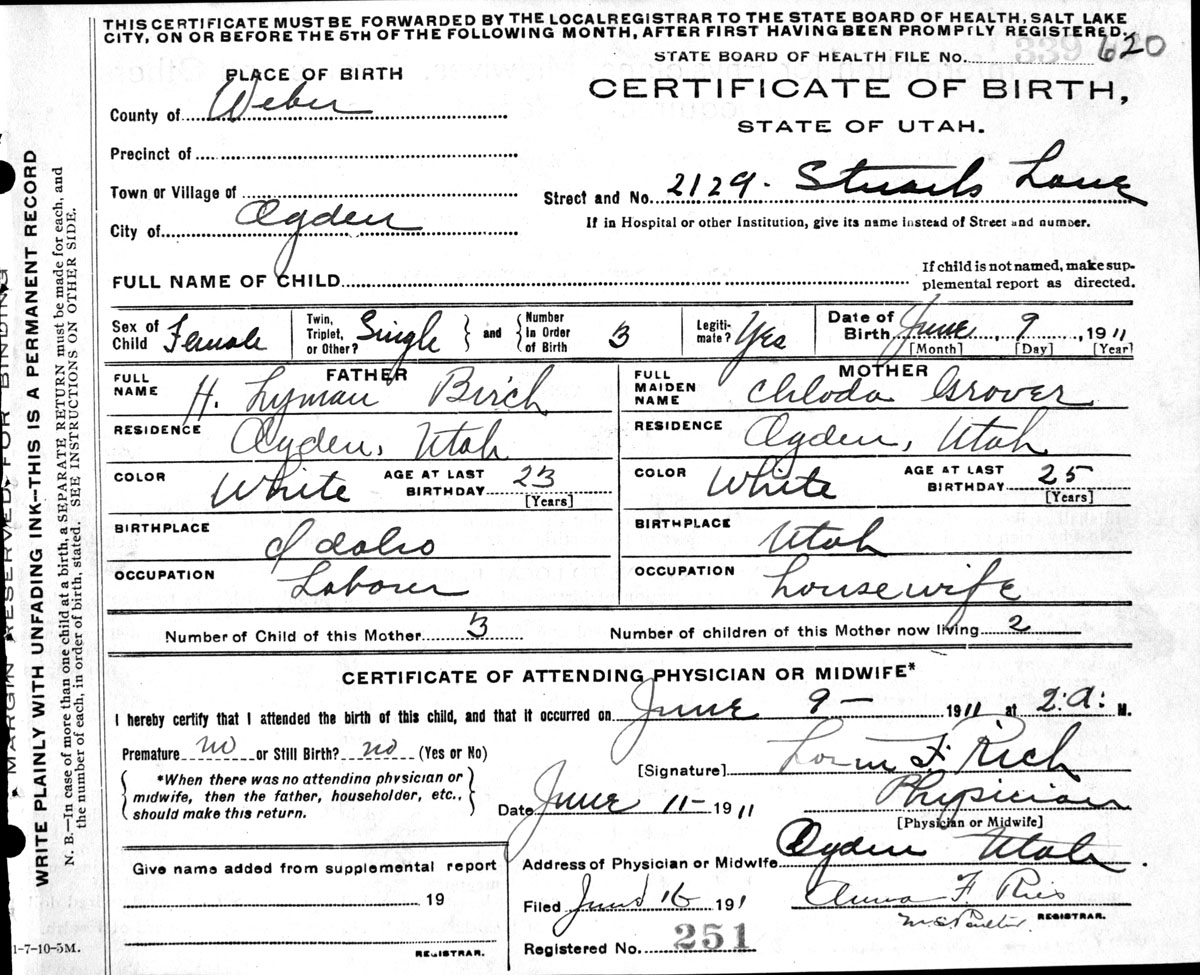 THIS CERTIFICATE MUST BE FORWARDED BY THE LOCAL REGISTRAR TO THE STATE BOARD OF HEALTH, SALT LAKE
CITY, ON OR BEFORE THE 5TH OF THE FOLLOWING MONTH, AFTER FIRST HAVING BEEN PROMPTLY REGISTERED.
STATE BOARD OF HEALTH FILE NO. 339 620
PLACE OF BIRTH
CERTIFICATE OF BIRTH,
County of Weber
STATE OF UTAH.
Precinct of
Town or Village of
Street and No. 2129. Lane
City of Ogden
If in Hospital or other Institution, give its name instead of Street and number.
FULL NAME OF CHILD
If child is not named, make sup-
plemental report as directed.
Sex of Child Female
Twin, Triplet, or Other? Single
and
Number in Order of Birth 3
Legiti- mate? Yes
Date of Birth June 9, 1911
[Month] [Day] [Year]
FATHER
FULL NAME H. Lyman Birch
MOTHER
FULL MAIDEN NAME Chloda Grover
RESIDENCE Ogden, Utah
RESIDENCE Ogden, Utah
COLOR White AGE AT LAST BIRTHDAY 23 [Years]
COLOR White AGE AT LAST BIRTHDAY 25 [Years]
BIRTHPLACE Idaho
BIRTHPLACE Utah
OCCUPATION Laborer
OCCUPATION housewife
Number of Child of this Mother 3 Number of children of this Mother now living 2
CERTIFICATE OF ATTENDING PHYSICIAN OR MIDWIFE*
I hereby certify that I attended the birth of this child, and that it occurred on June 9 - 1911 at 2.A: M.
Premature no or Still Birth? no (Yes or No)
[Signature] F. Rich
*When there was no attending physician or
midwife, then the father, householder, etc.,
should make this return.
Date June 11- 1911
Physician
[Physician or Midwife]
Give name added from supplemental report
19
REGISTRAR.
Address of Physician or Midwife Ogden Utah.
Filed June 16 1911 Anna F.
REGISTRAR.
Registered No. 251
MARGIN RESERVED FOR BINDING
WRITE PLAINLY WITH UNFADING INK--THIS IS A PERMANENT RECORD
N. B.—In case of more than one child at a birth, a SEPARATE RETURN must be made for each, and
the number of each, in order of birth, stated. SEE INSTRUCTIONS ON OTHER SIDE.
1-7-10-5M.